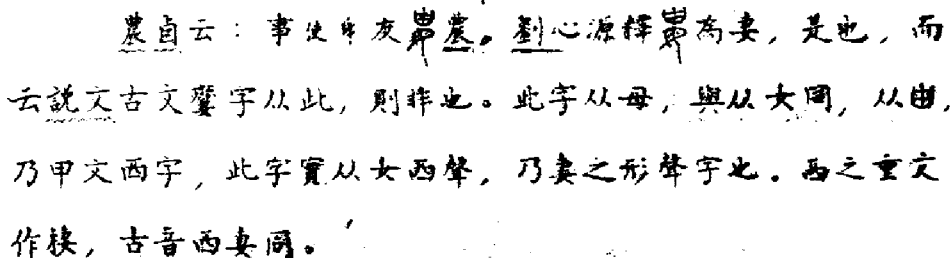 農卣云：事使氒友農。劉心源釋為妻，是也，而
云説文古文字从此，則非也。此字从母，與从女同，从，
乃甲文西字，此字實从女西聲，乃妻之形聲字也。西之重文
作棲，古音西妻同。